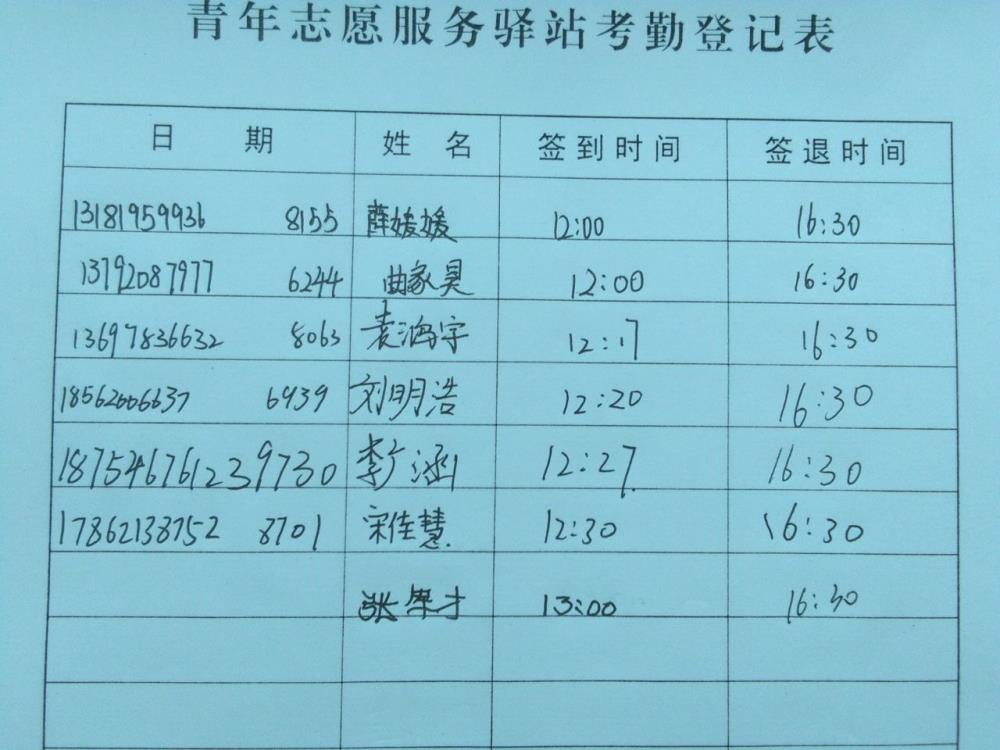 青年志愿服务驿站考勤登记表
日 期 姓 名 签到时间 签退时间
13181959936 8155 薛媛媛 12:00 16:30
13792087977 6244 曲家昊 12:00 16:30
13697836632 8063 袁海宇 12:17 16:30
18562606637 6939 刘明浩 12:20 16:30
18754676123 9730 李广涵 12:27 16:30
17862138752 8701 宋佳慧 12:30 16:30
13:00 16:30